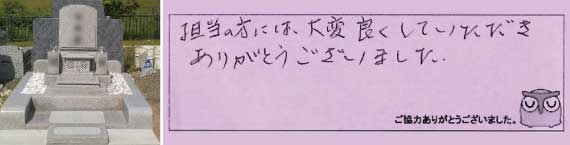 担当の方には、大変良くしていただき
ありがとうございました.
ご協力ありがとうございました。